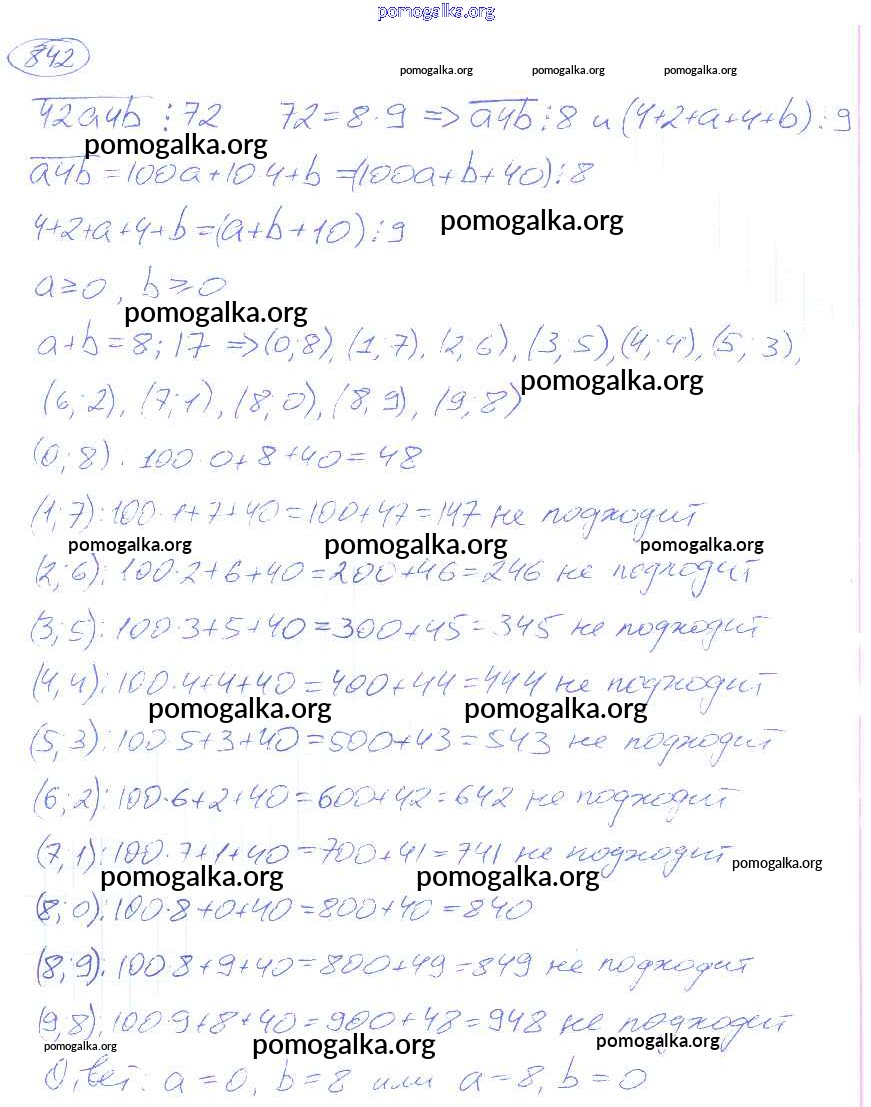 pomogalka.org
842
pomogalka.org pomogalka.org pomogalka.org
42a4b ⋮ 72   72 = 8·9 => a4b ⋮ 8 и (4+2+a+4+b) ⋮ 9
pomogalka.org
a4b = 100a + 10·4 + b = (100a + b + 40) ⋮ 8
pomogalka.org
4+2+a+4+b = (a+b+10) ⋮ 9
a ≥ 0, b ≥ 0
pomogalka.org
a+b = 8; 17 => (0;8), (1;7), (2;6), (3;5), (4;4), (5;3),
pomogalka.org
(6;2), (7;1), (8;0), (8;9), (9;8)
(0;8): 100·0+8+40=48
(1;7): 100·1+7+40=100+47=147 не подходит
pomogalka.org pomogalka.org pomogalka.org
(2;6): 100·2+6+40=200+46=246 не подходит
(3;5): 100·3+5+40=300+45=345 не подходит
(4;4): 100·4+4+40=400+44=444 не подходит
pomogalka.org pomogalka.org
(5;3): 100·5+3+40=500+43=543 не подходит
(6;2): 100·6+2+40=600+42=642 не подходит
(7;1): 100·7+1+40=700+41=741 не подходит
pomogalka.org
pomogalka.org pomogalka.org
(8;0): 100·8+0+40=800+40=840
(8;9): 100·8+9+40=800+49=849 не подходит
(9;8): 100·9+8+40=900+48=948 не подходит
pomogalka.org pomogalka.org pomogalka.org
Ответ: a=0, b=8 или a=8, b=0